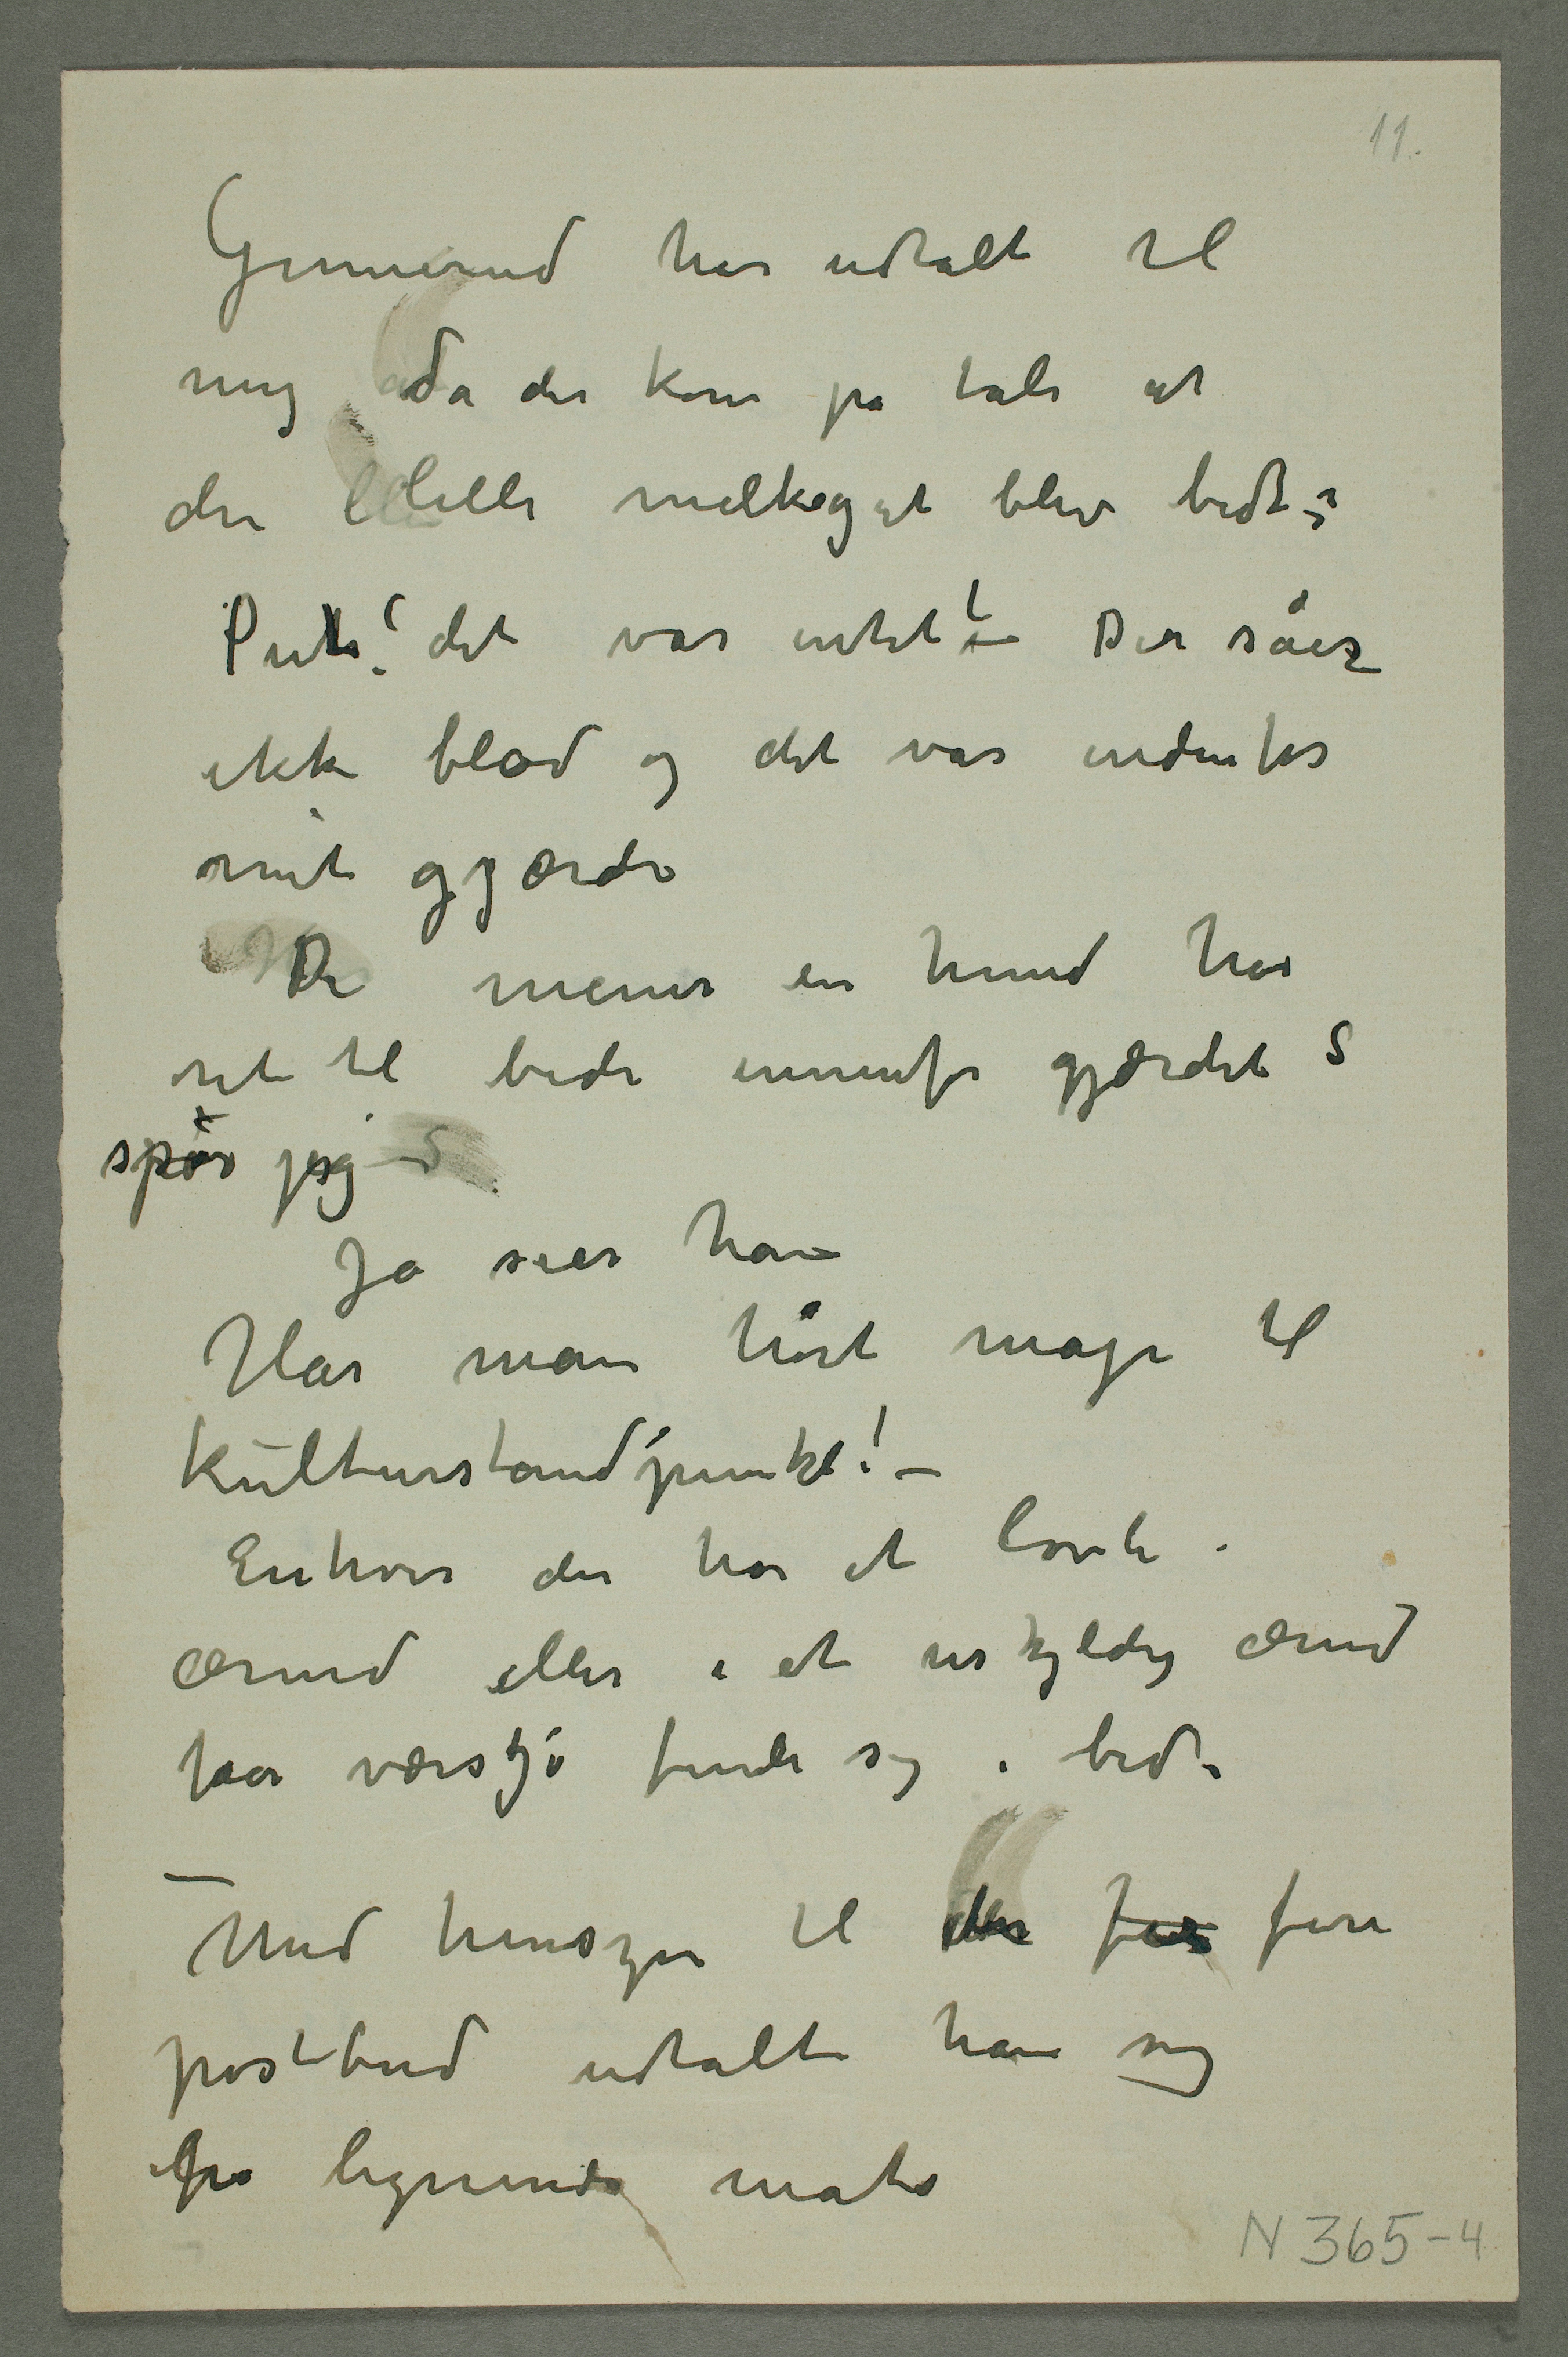 11.
Grimsrud har udtalt til
mig da der kom på tale at
den lille melkegut blev bidt –:
Puh! det var intet! – Der såes
ikke blod og det var indenfor
mit gjærde
De mener en hund har
ret til bide innenfor gjærdet?
spør jeg –
Ja sier han
Har man hørt mage til
kulturstandpunkt! –
Enhver der har et lovli
ærind eller i et uskyldig ærind
faar værsgo finde sig i bidt
–
Med hensyn til fire
postbud udtalte han sig
på lignende måte
N 365-4